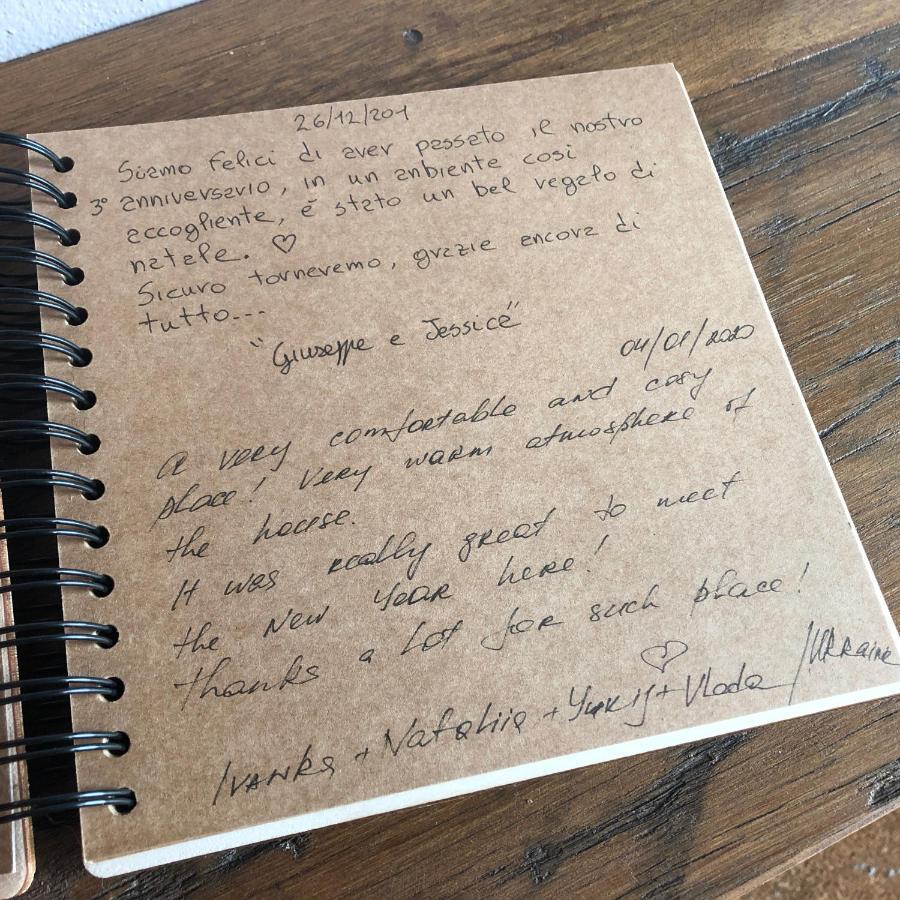 26/12/201
Siamo felici di aver passato il nostro
3° anniversario, in un anbiente così
accogliente, é stato un bel regalo di
natale. ♡
Sicuro torneremo, grazie ancora di
tutto...
"Giuseppe e Jessica"
04/01/2020
A very comfortable and cosy
place! Very warm atmosphere of
the house.
It was really great to meet
the New Year here!
Thanks a lot for such place!
♡
Ivanka + Nataliia + Yurij + Vlada /Ukraine